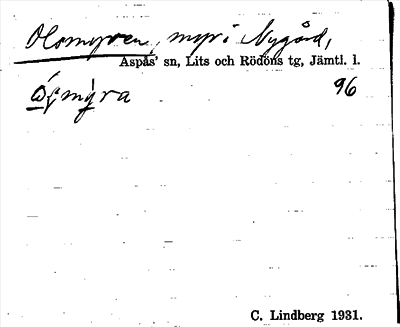 Olsmyren, myr i Nygård,
Aspås' sn, Lits och Rödöns tg, Jämtl. l.
96
C. Lindberg 1931.